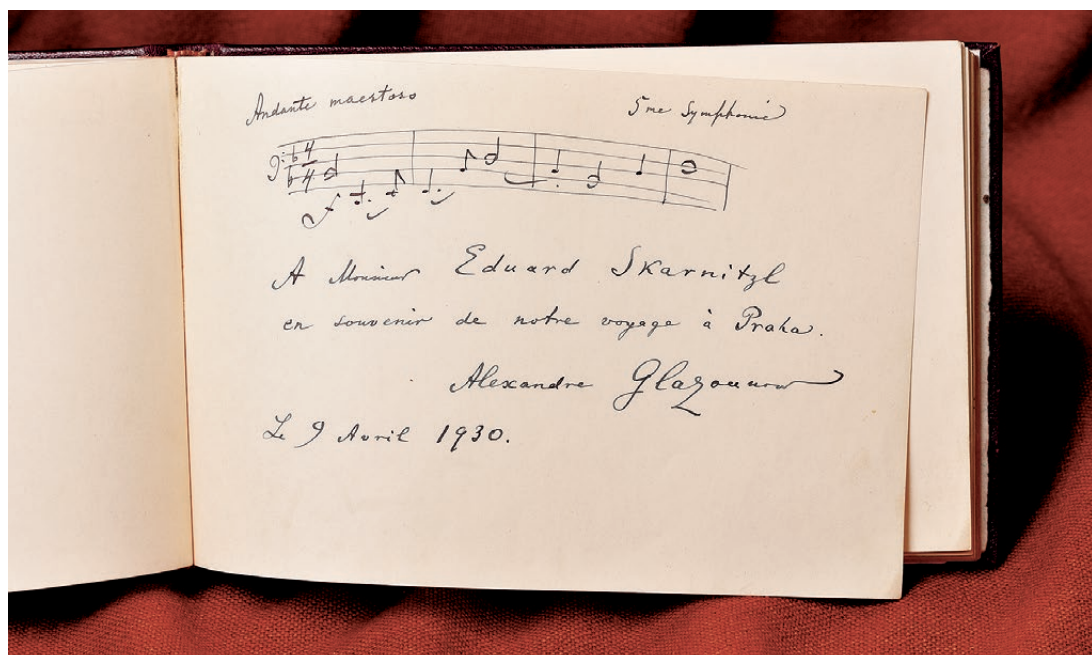 Andante maestoso 5me Symphonie
4
4
f
A Monsieur Eduard Skarnitzl
en souvenir de notre voyage à Praha.
Alexandre Glazounow
Le 9 Avril 1930.